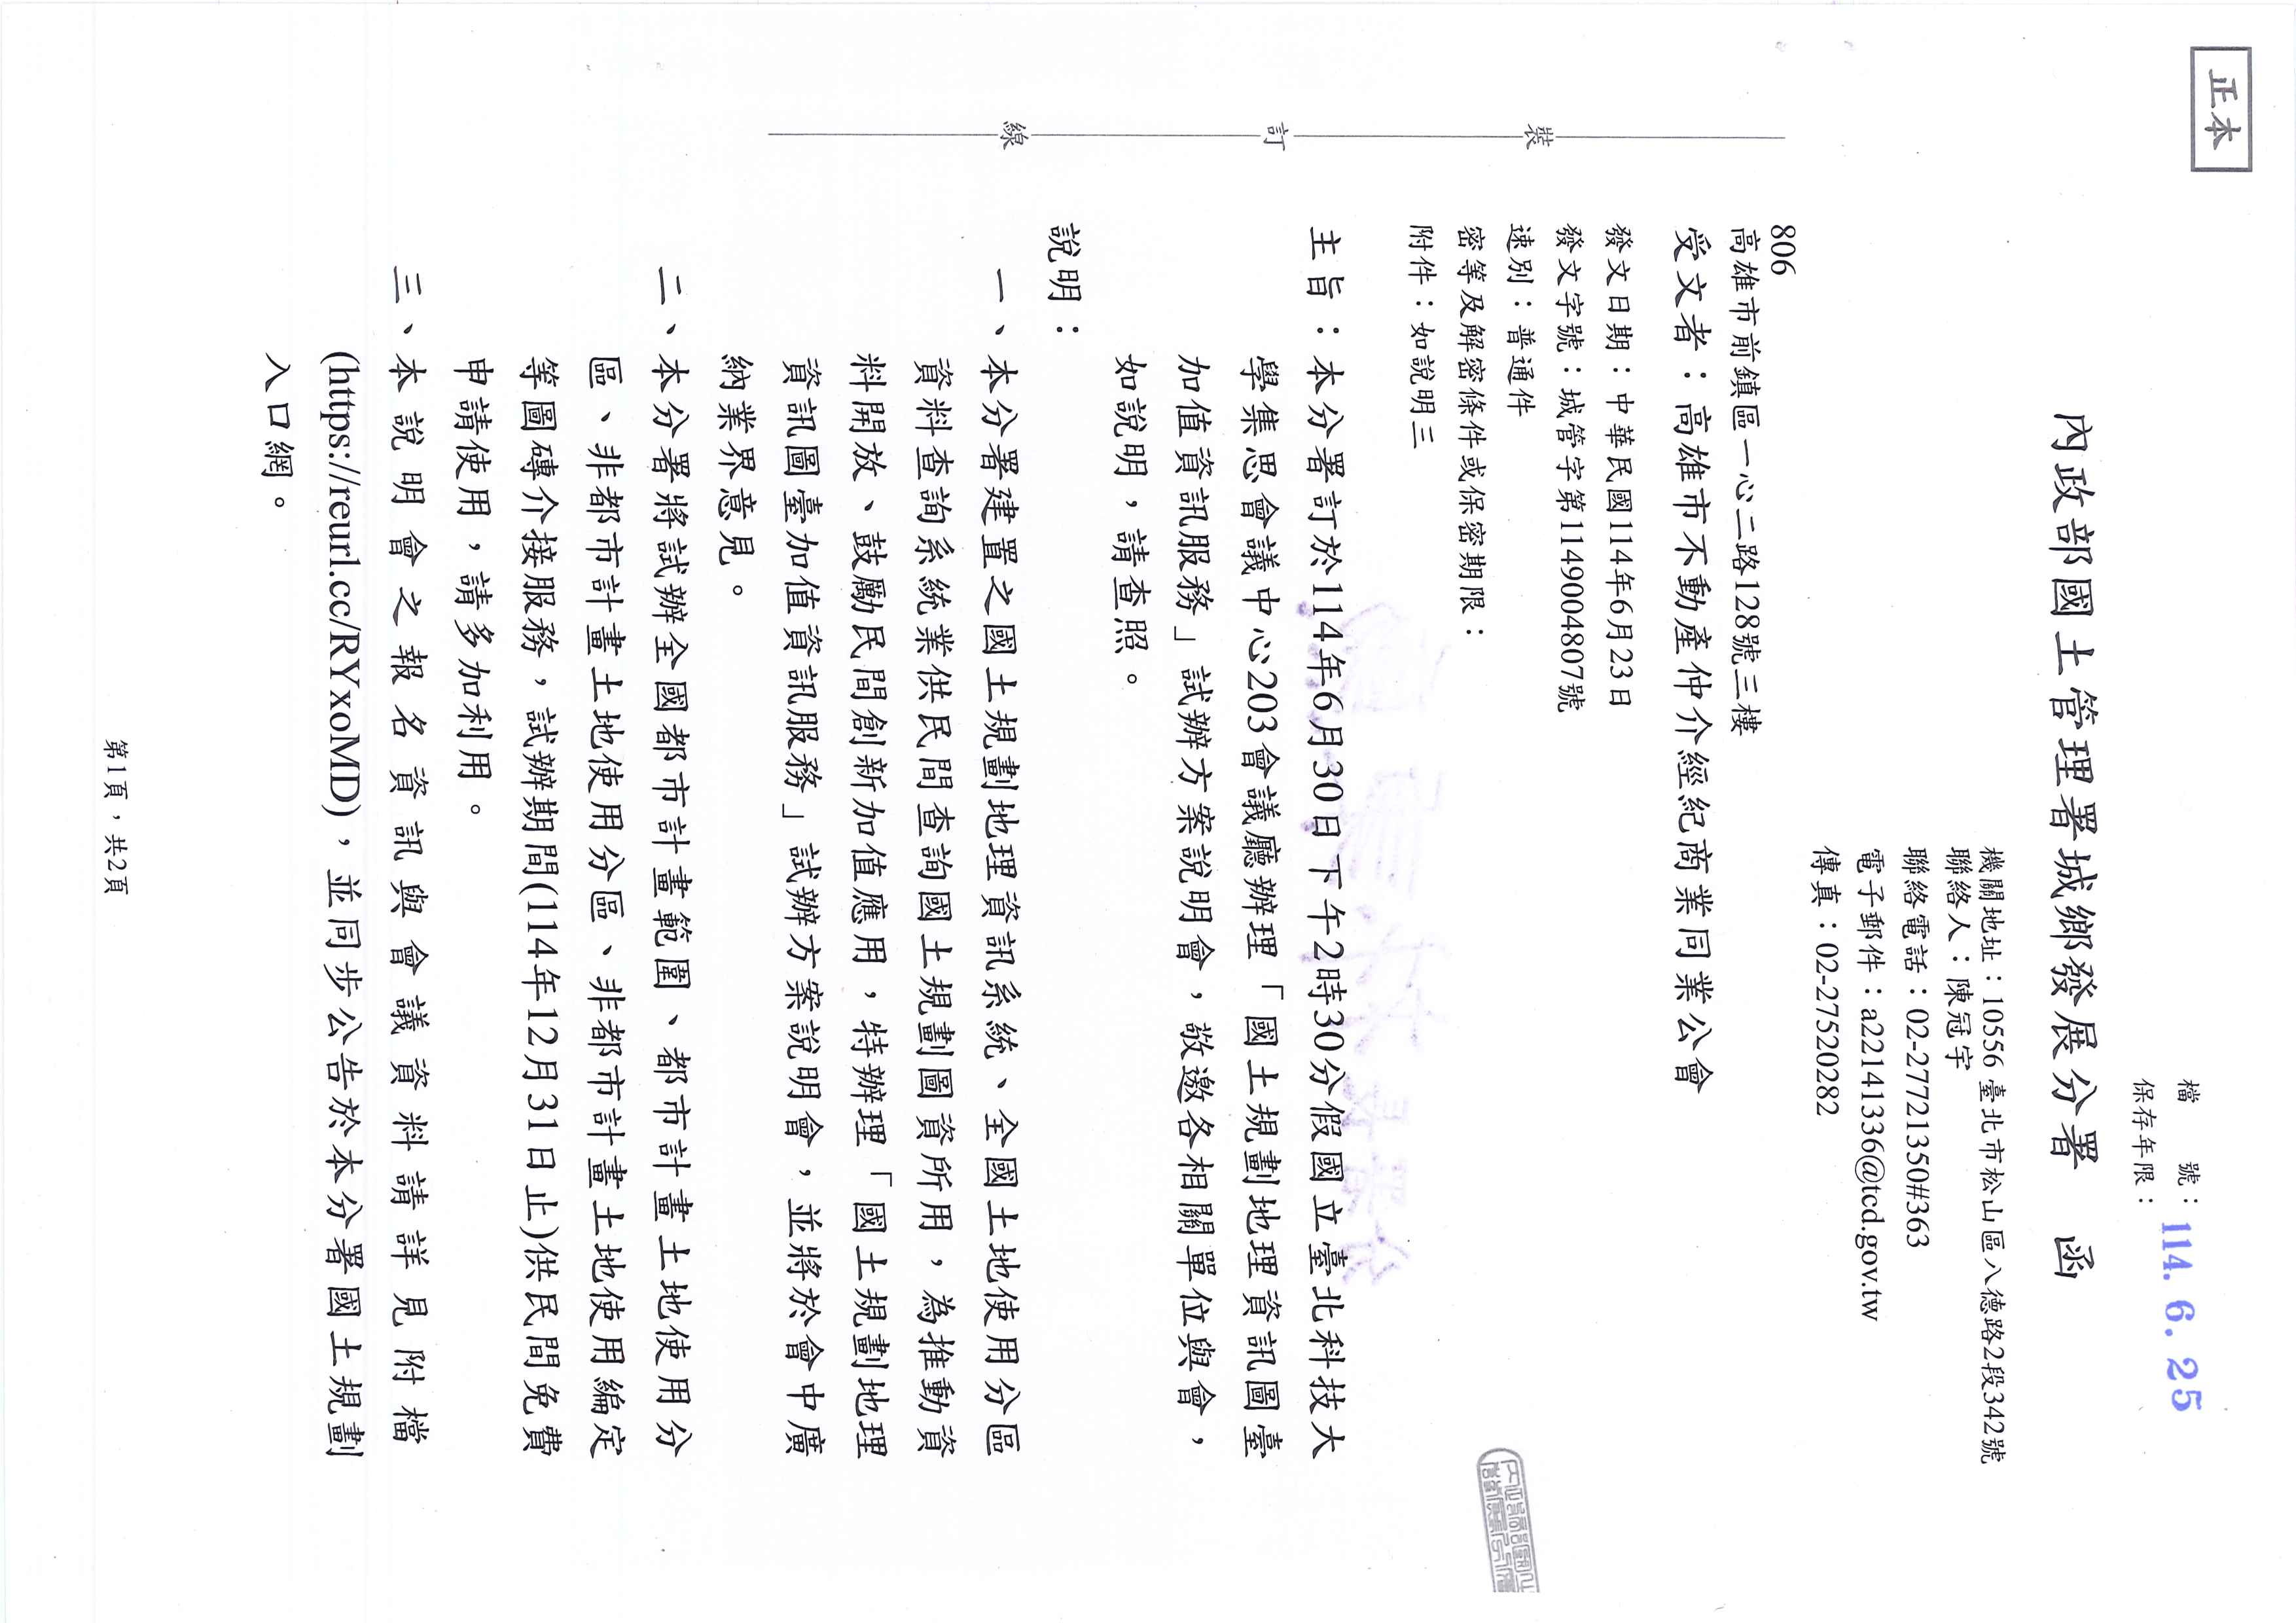 正本
檔　　號：
保存年限：
114. 6. 25
內政部國土管理署城鄉發展分署　函
機關地址：10556 臺北市松山區八德路2段342號
聯絡人：陳冠宇
聯絡電話：02-27721350#363
電子郵件：a22141336@tcd.gov.tw
傳真：02-27520282
806
高雄市前鎮區一心二路128號三樓
受文者：高雄市不動產仲介經紀商業同業公會
發文日期：中華民國114年6月23日
發文字號：城管字第1149004807號
速別：普通件
密等及解密條件或保密期限：
附件：如說明三
主旨：本分署訂於114年6月30日下午2時30分假國立臺北科技大
學集思會議中心203會議廳辦理「國土規劃地理資訊圖臺
加值資訊服務」試辦方案說明會，敬邀各相關單位與會，
如說明，請查照。
說明：
一、本分署建置之國土規劃地理資訊系統、全國土地使用分區
資料查詢系統業供民間查詢國土規劃圖資所用，為推動資
料開放、鼓勵民間創新加值應用，特辦理「國土規劃地理
資訊圖臺加值資訊服務」試辦方案說明會，並將於會中廣
納業界意見。
二、本分署將試辦全國都市計畫範圍、都市計畫土地使用分
區、非都市計畫土地使用分區、非都市計畫土地使用編定
等圖磚介接服務，試辦期間(114年12月31日止)供民間免費
申請使用，請多加利用。
三、本說明會之報名資訊與會議資料請詳見附檔
(https://reurl.cc/RYxoMD)，並同步公告於本分署國土規劃
入口網。
裝
訂
線
第1頁，共2頁